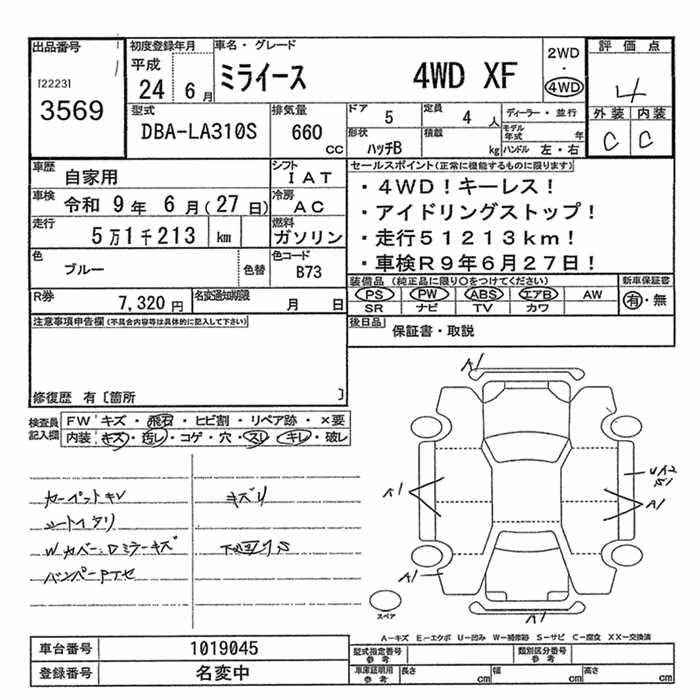 出品番号 初度登録年月 車名・グレード 評価点
[2223] 平成 ミライース 4WD XF 2WD ・ 4WD 4
3569 24 6月
型式 排気量 ドア 5 定員 4人 ディーラー・並行 外装 内装
DBA-LA310S 660 cc 形状 ハッチB 積載 kg モデル年式 年 ハンドル 左・右 C C
車歴 自家用 シフト IAT セールスポイント(正常に機能するものに限ります)
車検 令和 9年 6月(27日) 冷房 AC ・4WD!キーレス!
・アイドリングストップ!
走行 5万1千213 km 燃料 ガソリン ・走行51213km!
色 ブルー 色替 色コード B73 ・車検R9年6月27日!
装備品 (純正品に限り○をつけてください) 新車保証書
R券 7,320円 名変通知期限 月 日 PS PW ABS エアB AW 有・無
SR ナビ TV カワ
注意事項申告欄(不具合内容等は具体的に記入して下さい) 後日品 保証書・取説
修復歴 有[箇所 ]
検査員記入欄 FW キズ・飛石・ヒビ割・リペア跡・×要
内装 キズ・汚レ・コゲ・穴・スレ・キレ・破レ
A1
A1 A1
カーペットキレ キズリ
シートヘタリ
Wカバー・Dミラーキズ
バンパーPTセ
A1 A1
スペア
A-キズ E-エクボ U-凹み W-補修跡 S-サビ C-腐食 XX-交換済
車台番号 1019045 型式指定番号 参考 類別区分番号 参考
登録番号 名変中 車庫証明用 参考 長さ cm 幅 cm 高さ cm